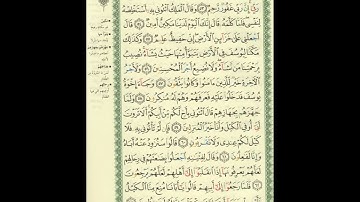 رَبِّي إِنَّ رَبِّي غَفُورٌ رَّحِيمٌ ﴿٥٣﴾ وَقَالَ الْمَلِكُ ائْتُونِي بِهِ أَسْتَخْلِصْهُ
لِنَفْسِي فَلَمَّا كَلَّمَهُ قَالَ إِنَّكَ الْيَوْمَ لَدَيْنَا مَكِينٌ أَمِينٌ ﴿٥٤﴾ قَالَ
اجْعَلْنِي عَلَىٰ خَزَائِنِ الْأَرْضِ إِنِّي حَفِيظٌ عَلِيمٌ ﴿٥٥﴾ وَكَذَٰلِكَ
مَكَّنَّا لِيُوسُفَ فِي الْأَرْضِ يَتَبَوَّأُ مِنْهَا حَيْثُ يَشَاءُ نُصِيبُ
بِرَحْمَتِنَا مَن نَّشَاءُ وَلَا نُضِيعُ أَجْرَ الْمُحْسِنِينَ ﴿٥٦﴾ وَلَأَجْرُ
الْآخِرَةِ خَيْرٌ لِّلَّذِينَ آمَنُوا وَكَانُوا يَتَّقُونَ ﴿٥٧﴾ وَجَاءَ إِخْوَةُ
يُوسُفَ فَدَخَلُوا عَلَيْهِ فَعَرَفَهُمْ وَهُمْ لَهُ مُنكِرُونَ ﴿٥٨﴾ وَلَمَّا
جَهَّزَهُم بِجَهَازِهِمْ قَالَ ائْتُونِي بِأَخٍ لَّكُم مِّنْ أَبِيكُمْ أَلَا تَرَوْنَ
أَنِّي أُوفِي الْكَيْلَ وَأَنَا خَيْرُ الْمُنزِلِينَ ﴿٥٩﴾ فَإِن لَّمْ تَأْتُونِي بِهِ فَلَا
كَيْلَ لَكُمْ عِندِي وَلَا تَقْرَبُونِ ﴿٦٠﴾ قَالُوا سَنُرَاوِدُ عَنْهُ أَبَاهُ
وَإِنَّا لَفَاعِلُونَ ﴿٦١﴾ وَقَالَ لِفِتْيَانِهِ اجْعَلُوا بِضَاعَتَهُمْ فِي رِحَالِهِمْ
لَعَلَّهُمْ يَعْرِفُونَهَا إِذَا انقَلَبُوا إِلَىٰ أَهْلِهِمْ لَعَلَّهُمْ يَرْجِعُونَ
﴿٦٢﴾ فَلَمَّا رَجَعُوا إِلَىٰ أَبِيهِمْ قَالُوا يَا أَبَانَا مُنِعَ مِنَّا الْكَيْلُ